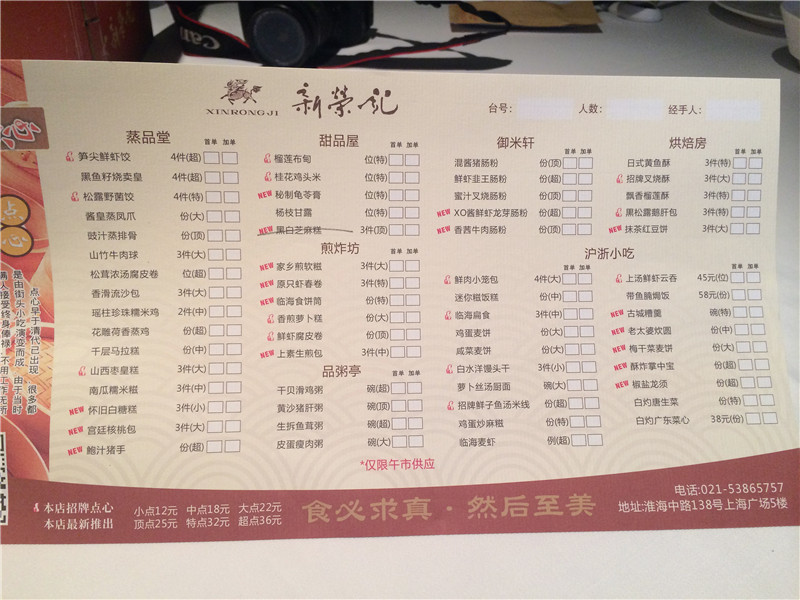 Canon
新榮記
XINRONGJI
台号： 人数： 经手人：
点心
点心早于清代已出现
很多都是由街头小吃演变而成
由于当时
蒸品堂 首单 加单
笋尖鲜虾饺 4件(超)
黑鱼籽烧卖皇 4件(超)
松露野菌饺 4件(特)
酱皇蒸凤爪 份(大)
豉汁蒸排骨 份(顶)
山竹牛肉球 3件(大)
松茸浓汤腐皮卷 位(超)
香滑流沙包 3件(大)
瑶柱珍珠糯米鸡 2件(中)
花雕荷香蒸鸡 份(超)
千层马拉糕 份(中)
山西枣皇糕 3件(大)
南瓜糯米糍 3件(中)
NEW 怀旧白糖糕 3件(小)
NEW 宫廷核桃包 3件(大)
NEW 鲍汁猪手 份(超)
甜品屋 首单 加单
榴莲布甸 位(特)
桂花鸡头米 位(特)
NEW 秘制龟苓膏 位(特)
杨枝甘露 位(特)
NEW 黑白芝麻糕 3件(顶)
煎炸坊 首单 加单
NEW 家乡煎软糍 3件(大)
NEW 原只虾春卷 3件(特)
NEW 临海食饼筒 份(特)
香煎萝卜糕 份(大)
鲜虾腐皮卷 份(顶)
NEW 上素生煎包 3件(中)
品粥亭 首单 加单
干贝滑鸡粥 碗(超)
黄沙猪肝粥 碗(顶)
生拆鱼茸粥 碗(超)
皮蛋瘦肉粥 碗(大)
*仅限午市供应
御米轩 首单 加单
混酱猪肠粉 份(顶)
鲜虾韭王肠粉 份(超)
蜜汁叉烧肠粉 份(顶)
NEW XO酱鲜虾龙芽肠粉 份(超)
NEW 香茜牛肉肠粉 份(顶)
烘焙房 首单 加单
日式黄鱼酥 3件(特)
招牌叉烧酥 3件(大)
飘香榴莲酥 3件(特)
黑松露鹅肝包 3件(特)
NEW 抹茶红豆饼 3件(大)
沪浙小吃
首单 加单
鲜肉小笼包 4件(大)
迷你糍饭糕 份(中)
临海扁食 3件(中)
鸡蛋麦饼 份(大)
咸菜麦饼 份(大)
白水洋馒头干 3件(小)
萝卜丝汤厨面 碗(大)
招牌鲜子鱼汤米线 份(超)
鸡蛋炒麻糍 份(特)
临海麦虾 例(超)
首单 加单
上汤鲜虾云吞 45元(位)
带鱼腩焗饭 58元(份)
NEW 古城糟羹 碗(特)
NEW 老太婆炊圆 份(中)
NEW 梅干菜麦饼 份(大)
NEW 酥炸掌中宝 份(超)
NEW 椒盐龙须 份(超)
白灼唐生菜 份(特)
白灼广东菜心 38元(份)
本店招牌点心 小点12元 中点18元 大点22元
本店最新推出 顶点25元 特点32元 超点36元
食必求真·然后至美
电话:021-53865757
地址:淮海中路138号上海广场5楼